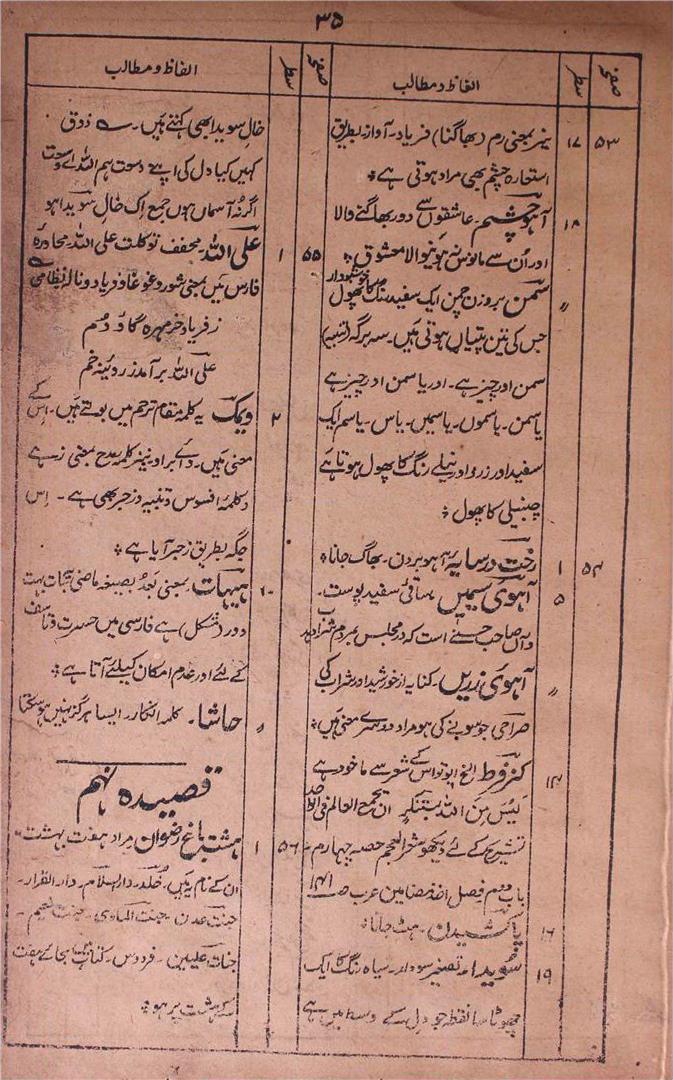 ۳۵
صفحہ سطر الفاظ و مطالب
۵۳ ۱۷ نیز بمعنی رم (بھاگنا) فریاد۔ آواز۔ بطریق
استعارہ چشم بھی مراد ہوتی ہے ؞
۱۸ آہو چشم۔ عاشقوں سے دور بھاگنے والا
اور اُن سے مانوس نہ ہونیوالا معشوق ؞
〃 سمن بروزن چمن ایک سفید رنگ کا خوشبودار پھول
جس کی تین پتیاں ہوتی ہیں۔ سہ برگہ (تنبیہ)
سمن اور چیز ہے۔ اور یاسمن اور چیز ہے
یاسمن۔ یاسموں۔ یاسمیں۔ یاس۔ یاسم ایک
سفید اور زرد اور نیلے رنگ کا پھول ہوتا ہے
چنبیلی کا پھول ؞
۵۴ ۱ رخت در سایہ آہو بردن۔ بھاگ جانا ؞
۵ آہوی سیمیں۔ ساقی سفید پوست۔
وآں صاحب حسنے است کہ در مجلس بمردم شراب دہد
〃 آہوی زریں۔ کنایہ از خورشید اور شراب کی
صراحی جو سونے کی ہو مراد دوسرے معنی ہیں ؞
۱۴ کز فقط الخ ابو نواس کے شعر سے ماخوذ ہے
لیس من اللہ بمستنکر ان یجمع العالم فی الواحد
تشریح کے لئے دیکھو شعر العجم حصہ چہارم۔
باب دوم فصل اخذ مضامین عرب صـ ۱۴۱
۱۶ کشیدن۔ ہٹ جانا ؞
۱۹ سویدا۔ تصغیر سودا۔ سیاہ رنگ کا ایک
چھوٹا سا نقطہ جو دل کے وسط میں ہے
صفحہ سطر الفاظ و مطالب
خال سویدا بھی کہتے ہیں۔ ذوق
کہیں کیا دل کی اپنے وسعت ہم اللہ اے وسعت
اگر نُہ آسماں ہوں جمع اک خال سویدا ہو
۵۵ ۱ علی اللہ۔ مخفف توکلت علی اللہ۔ محاورہ
فارس میں بمعنی شور و غوغا و فریاد و نالہ نظامی
ز فریاد خر مہرہ گاو دُم
علی اللہ برآمد ز روئینہ خم
۲ ویک یہ کلمہ مقام ترحم میں بولتے ہیں۔ اس کے
معنی ہیں۔ وائے برا و نیز کلمہ مدح بمعنی زہے
و کلمۂ افسوس و تنبیہ و زجر بھی ہے۔ اس
جگہ بطریق زجر آیا ہے ؞
۱۰ ہیہات۔ بمعنی بَعُدَ بصیغہ ماضی ہیہات بہت
دور (مشکل) ہے فارسی میں حسرت و تاسف
کے لئے اور عدم امکان کیلئے آتا ہے ؞
〃 حاشا۔ کلمہ انکار۔ ایسا ہرگز نہیں ہو سکتا
قصیدہ نہم
۵۶ ۱ ہشت باغ رضوان مراد ہفت بہشت۔
ان کے نام یہ ہیں۔ خلد۔ دار السلام۔ دار القرار۔
جنت عدن۔ جنت الماوی۔ جنت نعیم۔
جنات علیین۔ فردوس۔ بجائے ہفت
بہشت پر ہو ؞